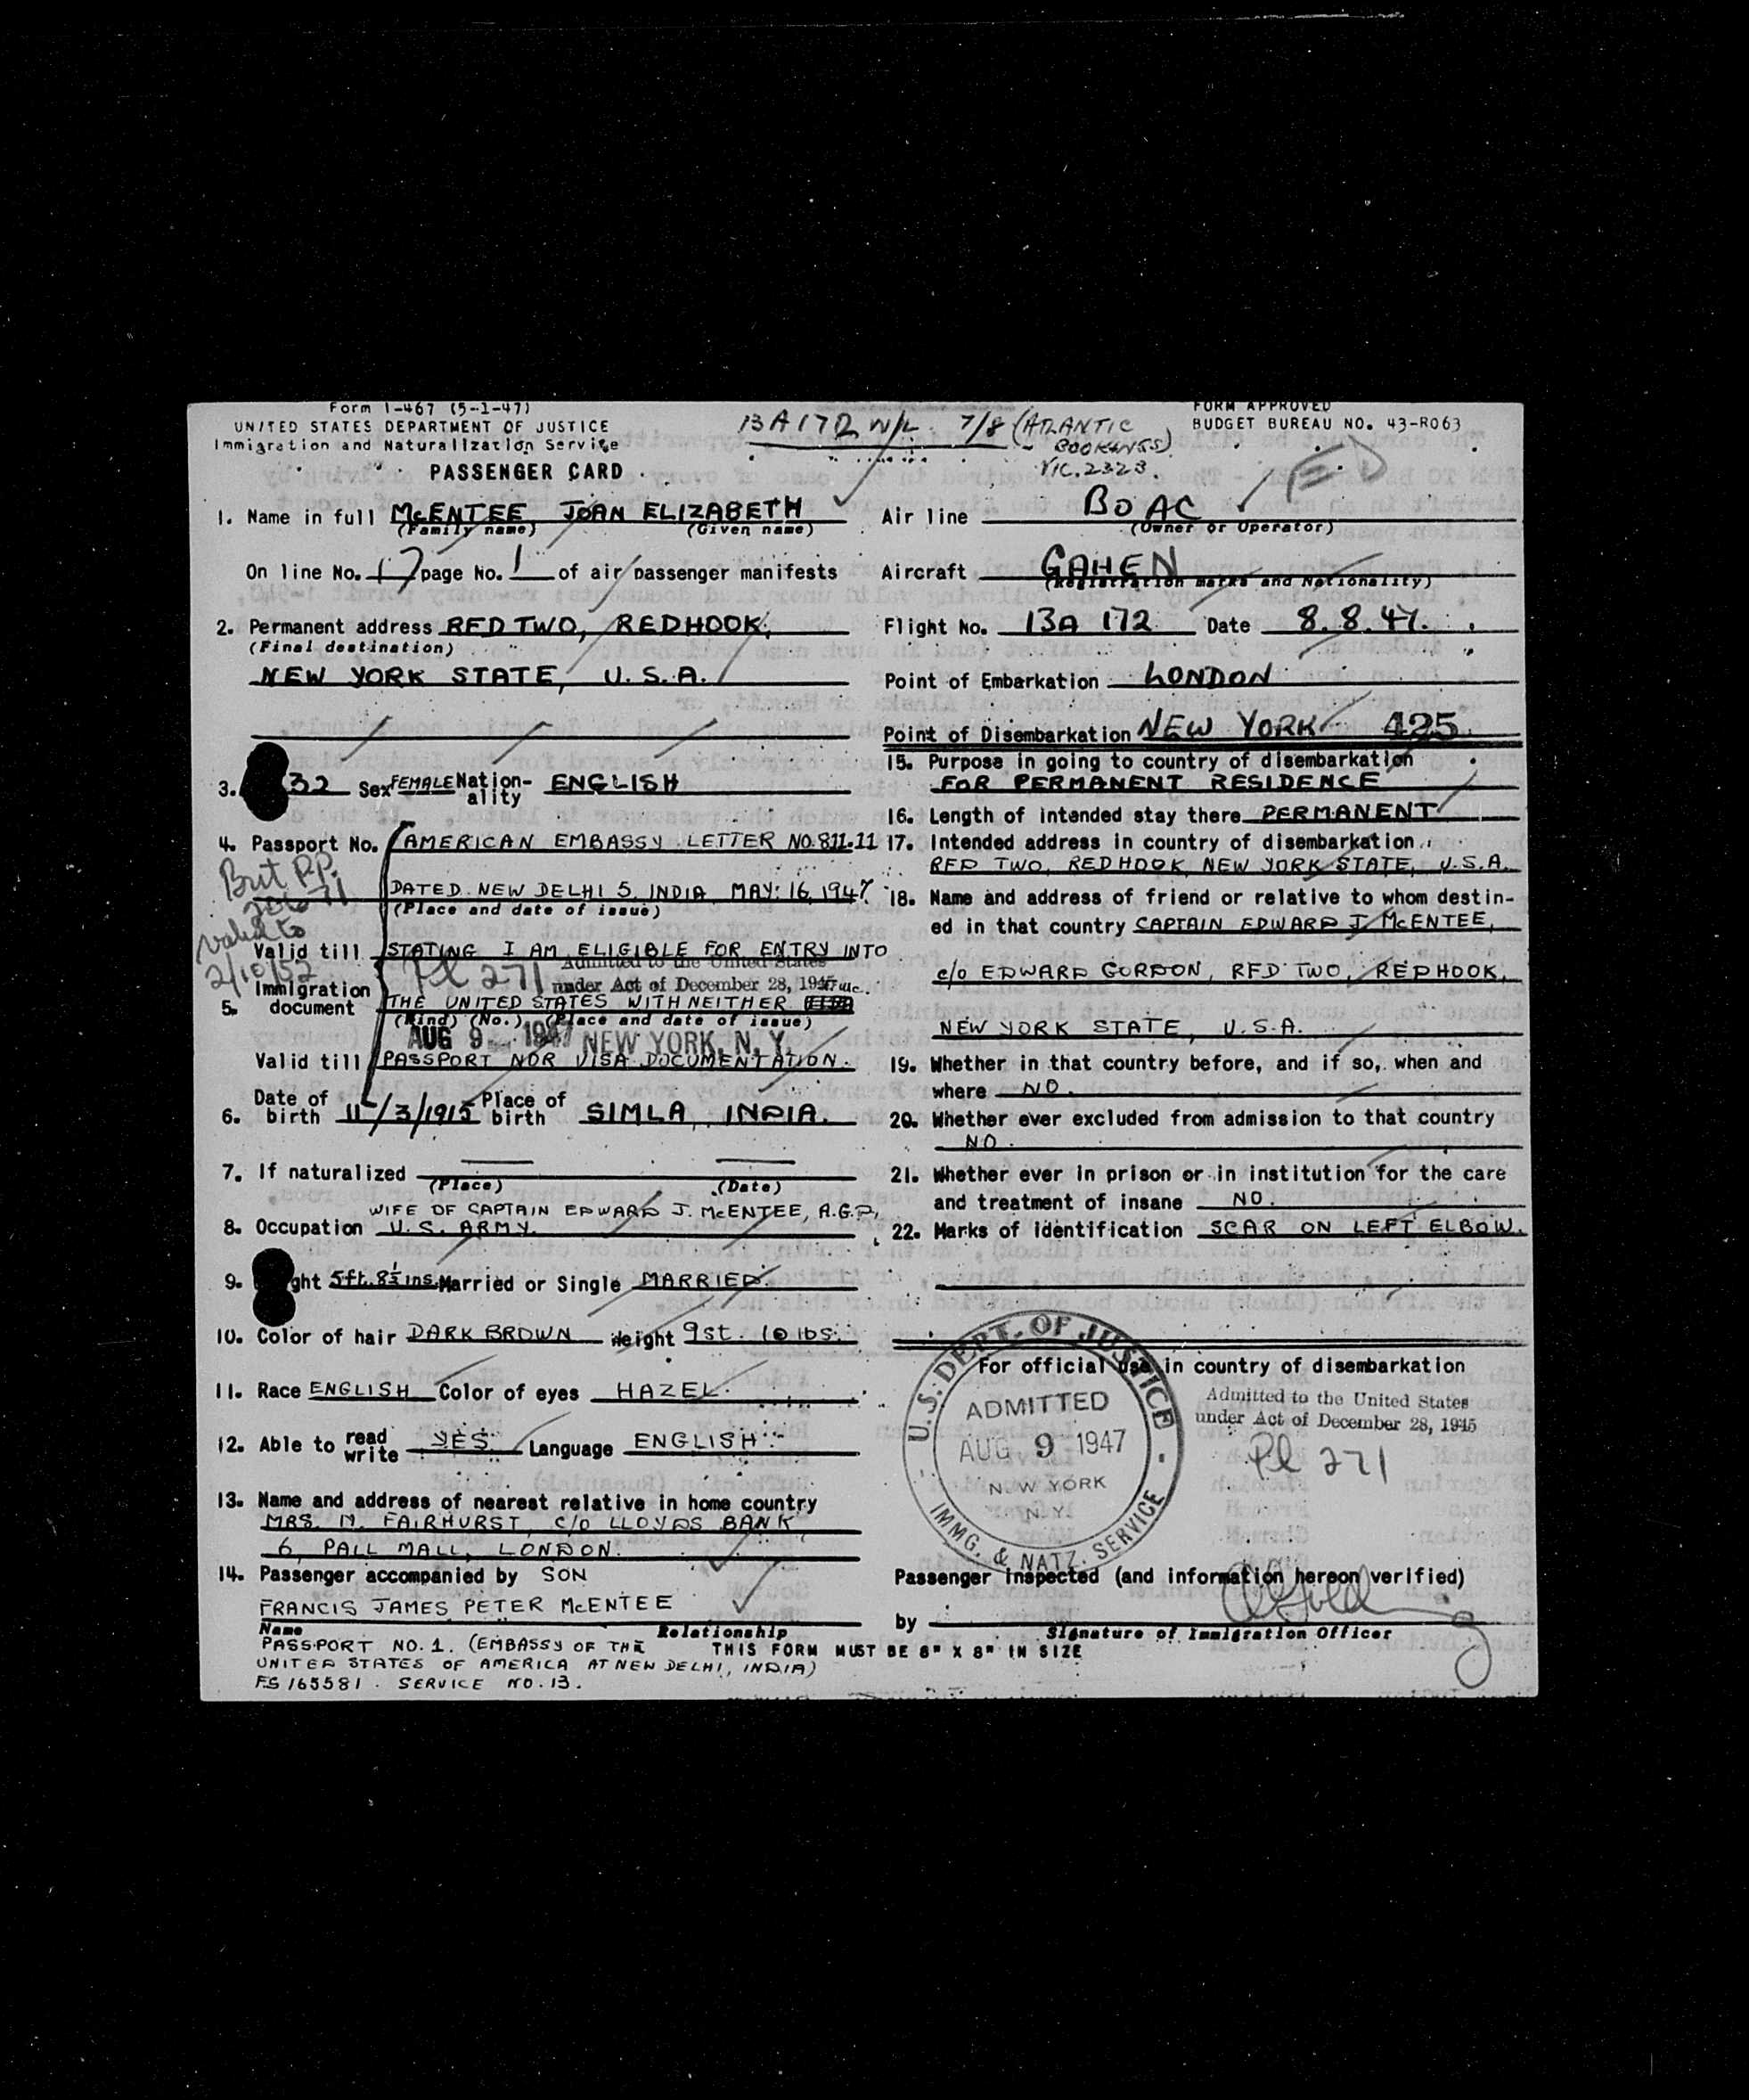 Form I-467 (5-1-47)
UNITED STATES DEPARTMENT OF JUSTICE
Immigration and Naturalization Service
PASSENGER CARD
13A172 W/L 7/8 (ATLANTIC
BOOKINGS)
VIC. 2323.
FORM APPROVED
BUDGET BUREAU NO. 43-R063
1. Name in full McENTEE JOAN ELIZABETH
(Family name) (Given name)
On line No. 17 page No. 1 of air passenger manifests
2. Permanent address RFD TWO, REDHOOK,
(Final destination)
NEW YORK STATE, U.S.A.
3. 32 Sex FEMALE Nationality ENGLISH
4. Passport No. AMERICAN EMBASSY LETTER NO. 811.11
Brit PP.
DATED NEW DELHI 5, INDIA MAY: 16, 1947
(Place and date of issue)
valid to
2/10/52
Valid till STATING I AM ELIGIBLE FOR ENTRY INTO
Pl 271 Admitted to the United States
under Act of December 28, 1945
5. Immigration document THE UNITED STATES WITH NEITHER
(Kind) (No.) (Place and date of issue)
AUG 9 1947 NEW YORK, N.Y.
Valid till PASSPORT NOR VISA DOCUMENTATION.
6. Date of birth 11/3/1915 Place of birth SIMLA, INDIA.
7. If naturalized
(Place) (Date)
WIFE OF CAPTAIN EDWARD J. McENTEE, A.G.D,
8. Occupation U.S. ARMY.
9. ght 5ft. 8½ ins. Married or Single MARRIED.
10. Color of hair DARK BROWN Weight 9st. 10 lbs.
11. Race ENGLISH Color of eyes HAZEL.
12. Able to read write YES Language ENGLISH
13. Name and address of nearest relative in home country
MRS. M. FAIRHURST, C/O LLOYDS BANK
6, PALL MALL, LONDON.
14. Passenger accompanied by SON
FRANCIS JAMES PETER McENTEE
Name Relationship
PASSPORT NO. 1. (EMBASSY OF THE
UNITED STATES OF AMERICA AT NEW DELHI, INDIA)
FS 165581. SERVICE NO. 13.
THIS FORM MUST BE 8" X 8" IN SIZE
Air line BOAC
(Owner or Operator)
Aircraft GAHEN
(Registration marks and Nationality)
Flight No. 13A 172 Date 8.8.47.
Point of Embarkation LONDON
Point of Disembarkation NEW YORK 425
15. Purpose in going to country of disembarkation
FOR PERMANENT RESIDENCE
16. Length of intended stay there PERMANENT
17. Intended address in country of disembarkation
RFD TWO, REDHOOK, NEW YORK STATE, U.S.A.
18. Name and address of friend or relative to whom destin-
ed in that country CAPTAIN EDWARD J McENTEE,
c/o EDWARD GORDON, RFD TWO, REDHOOK,
NEW YORK STATE, U.S.A.
19. Whether in that country before, and if so, when and
where NO.
20. Whether ever excluded from admission to that country
NO.
21. Whether ever in prison or in institution for the care
and treatment of insane NO.
22. Marks of identification SCAR ON LEFT ELBOW.
For official use in country of disembarkation
U.S. DEPT. OF JUSTICE
ADMITTED
AUG 9 1947
NEW YORK
N.Y.
IMMG. & NATZ. SERVICE
Admitted to the United States
under Act of December 28, 1945
Pl 271
Passenger inspected (and information hereon verified)
by
Signature of Immigration Officer